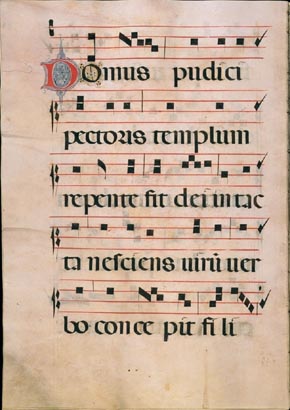 Domus pudici
pectoris templum
repente fit dei in tac
ta nesciens uirū uer
bo conce pit fi li